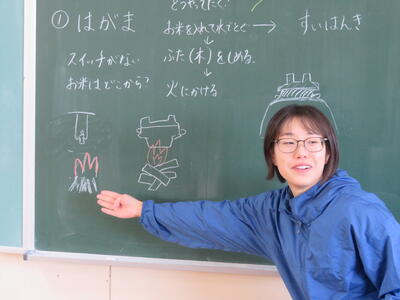 どうやってたく?
① はがま
お米を入れて水でとぐ → すいはんき
スイッチがない
ふた(木)をしめる。
お米はどこから?
火にかける